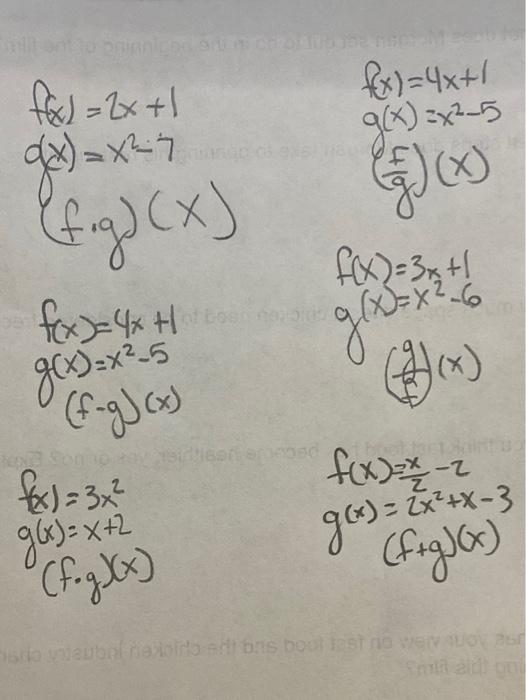 f(x) = 2x + 1
g(x) = x² - 7
(f·g)(x)
f(x) = 4x + 1
g(x) = x² - 5
(f - g)(x)
f(x) = 3x²
g(x) = x + 2
(f·g)(x)
f(x) = 4x + 1
g(x) = x² - 5
(f/g)(x)
f(x) = 3x + 1
g(x) = x² - 6
(g/f)(x)
f(x) = x/2 - 2
g(x) = 2x² + x - 3
(f + g)(x)